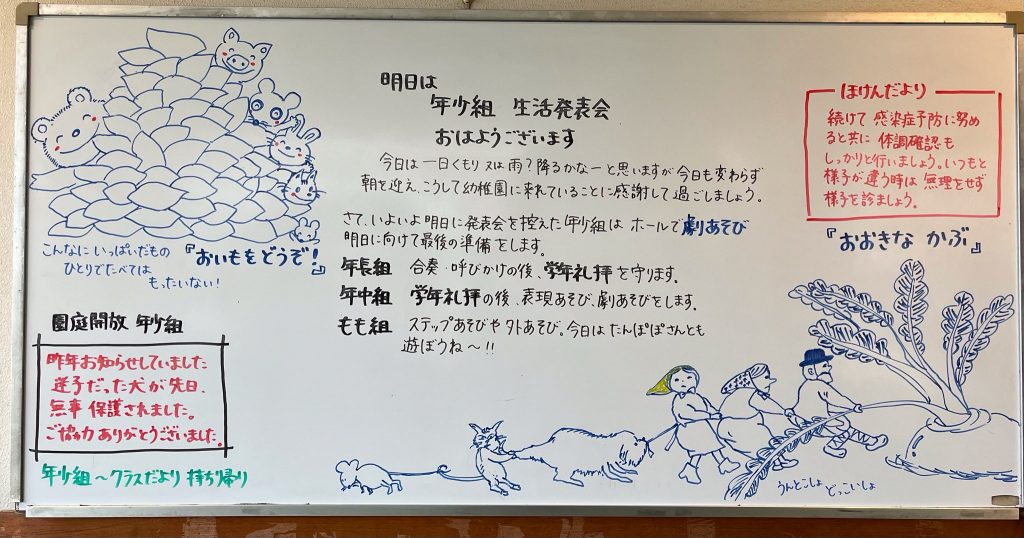 明日は
年少組 生活発表会
おはようございます
今日は一日くもり又は雨?降るかなーと思いますが今日も変わらず
朝を迎え、こうして幼稚園に来れていることに感謝して過ごしましょう。
さて、いよいよ明日に発表会を控えた年少組は ホールで劇あそび
明日に向けて最後の準備をします。
年長組 合奏・呼びかけの後、学年礼拝を守ります。
年中組 学年礼拝の後、表現あそび、劇あそびをします。
もも組 ステップあそびや外あそび。今日はたんぽぽさんとも
遊ぼうね〜!!
こんなにいっぱいだもの
ひとりでたべては
もったいない!
『おいもをどうぞ!』
園庭開放 年少組
昨年お知らせしていました
迷子だった犬が先日、
無事 保護されました。
ご協力ありがとうございました。
年少組〜クラスだより 持ち帰り
ほけんだより
続けて 感染症予防に努め
ると共に 体調確認も
しっかりと行いましょう。いつもと
様子が違う時は 無理をせず
様子を診ましょう。
『おおきな かぶ』
うんとこしょ どっこいしょ